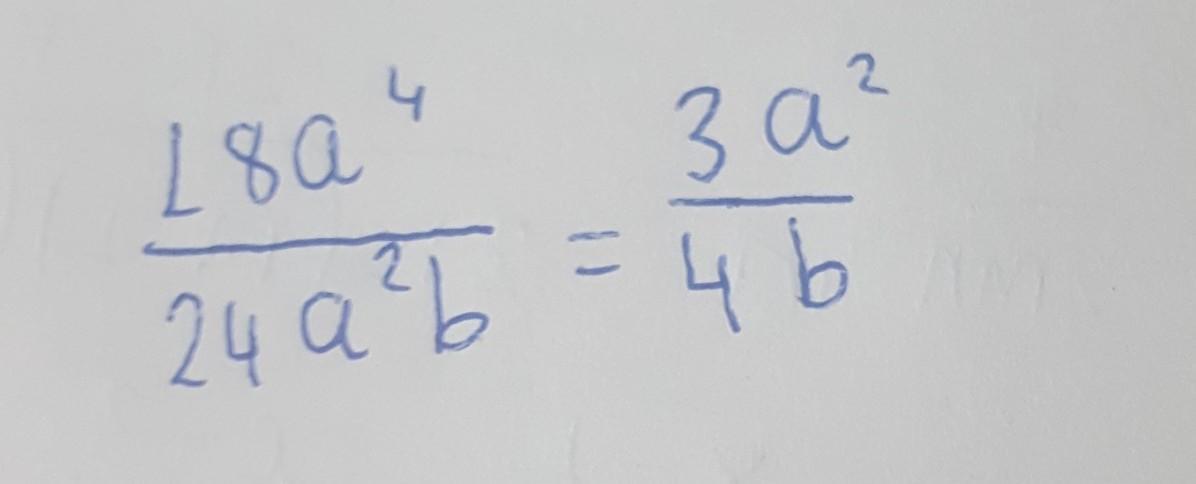 18a⁴/24a²b = 3a²/4b